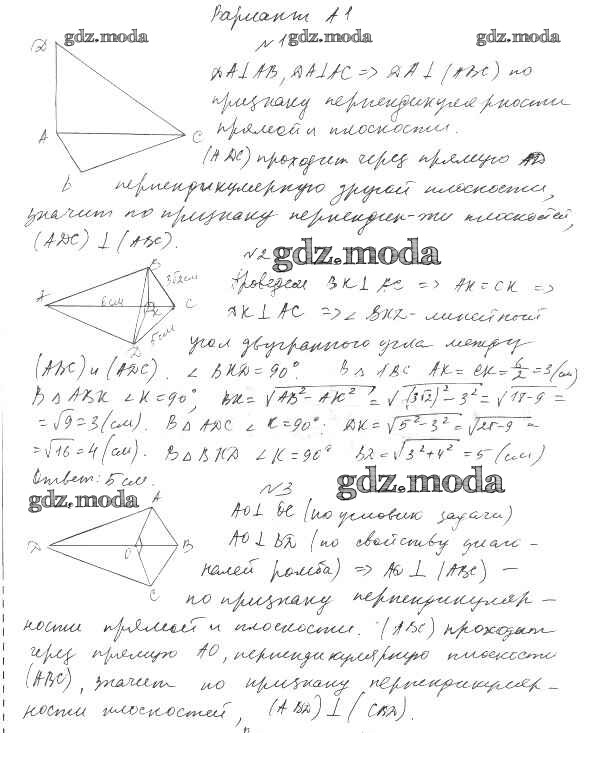 Вариант А1
gdz.moda gdz.moda gdz.moda
№1
D
A
C
b
DA⊥AB, DA⊥AC => DA⊥(ABC) по
признаку перпендикулярности
прямой и плоскости.
(ADC) проходит через прямую AD
перпендикулярную другой плоскости,
значит по признаку перпендик-ти плоскостей,
(ADC)⊥(ABC).
№2 gdz.moda
B
3√2см
A
6см
K
C
5см
D
Проведем BK⊥AC => AK=CK =>
DK⊥AC => ∠BKD - линейный
угол двугранного угла между
(ABC) и (ADC). ∠BKD=90°. В △ABC AK=CK=6/2=3(см)
В △ABK ∠K=90°, BK=√AB²-AK²=√(3√2)²-3²=√18-9=
=√9=3(см). В △ADC ∠K=90°: DK=√5²-3²=√25-9=
=√16=4(см). В △BKD ∠K=90° BD=√3²+4²=5(см)
Ответ: 5см.
gdz.moda
№3 gdz.moda
A
D
O
B
C
AO⊥OC (по условию задачи)
AO⊥BD (по свойству диаго-
налей ромба) => AO⊥(ABC) -
по признаку перпендикуляр-
ности прямой и плоскости. (ABC) проходит
через прямую AO, перпендикулярную плоскости
(ABC), значит по признаку перпендикуляр-
ности плоскостей, (ABD)⊥(CBD).